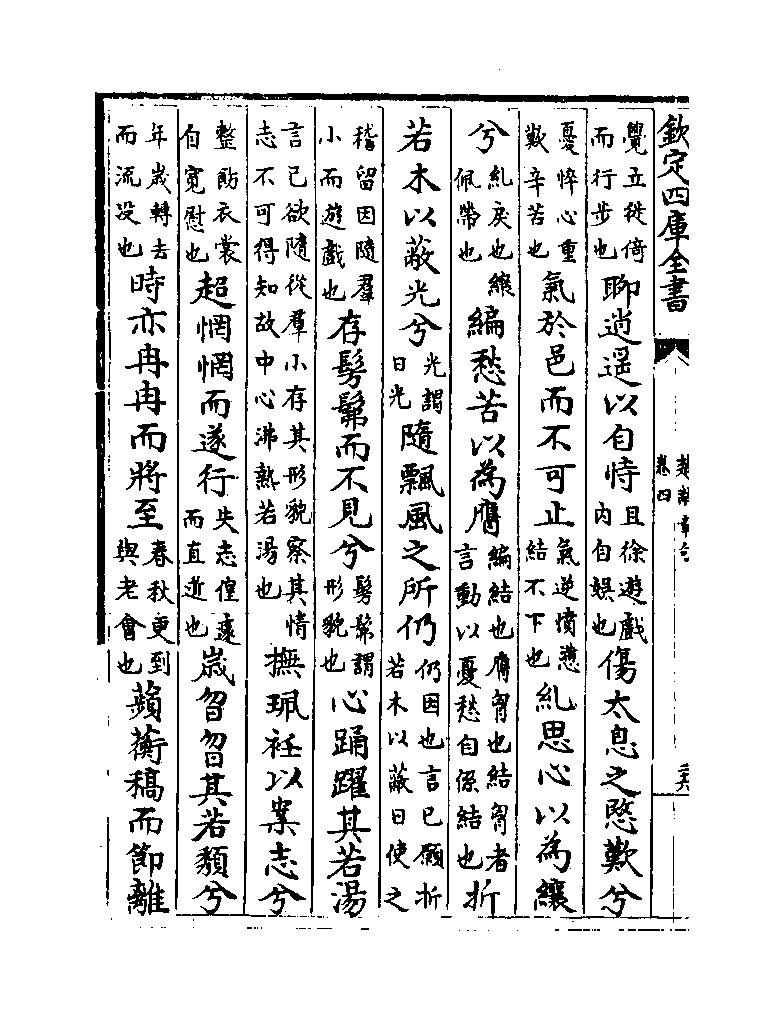 欽定四庫全書
楚辭章句
卷四
覺立徙倚而行步也聊逍遥以自恃且徐遊戲内自娯也傷太息之愍歎兮
憂悴心重歎辛苦也氣於邑而不可止氣逆憤懣結不下也糺思心以為纕
兮糺戾也纕佩帶也編愁苦以為膺編結也膺胷也結胷者言動以憂愁自係結也折
若木以蔽光兮光謂日光隨飄風之所仍仍因也言已願折若木以蔽日使之
稽留因隨羣小而遊戲也存髣髴而不見兮髣髴謂形貌也心踊躍其若湯
言已欲隨從羣小存其形貌察其情志不可得知故中心沸熱若湯也撫珮袵以案志兮
整飭衣裳自寛慰也超惘惘而遂行失志偟遽而直逝也嵗曶曶其若頽兮
年嵗轉去而流没也時亦冉冉而將至春秋更到與老會也蘋蘅稿而節離